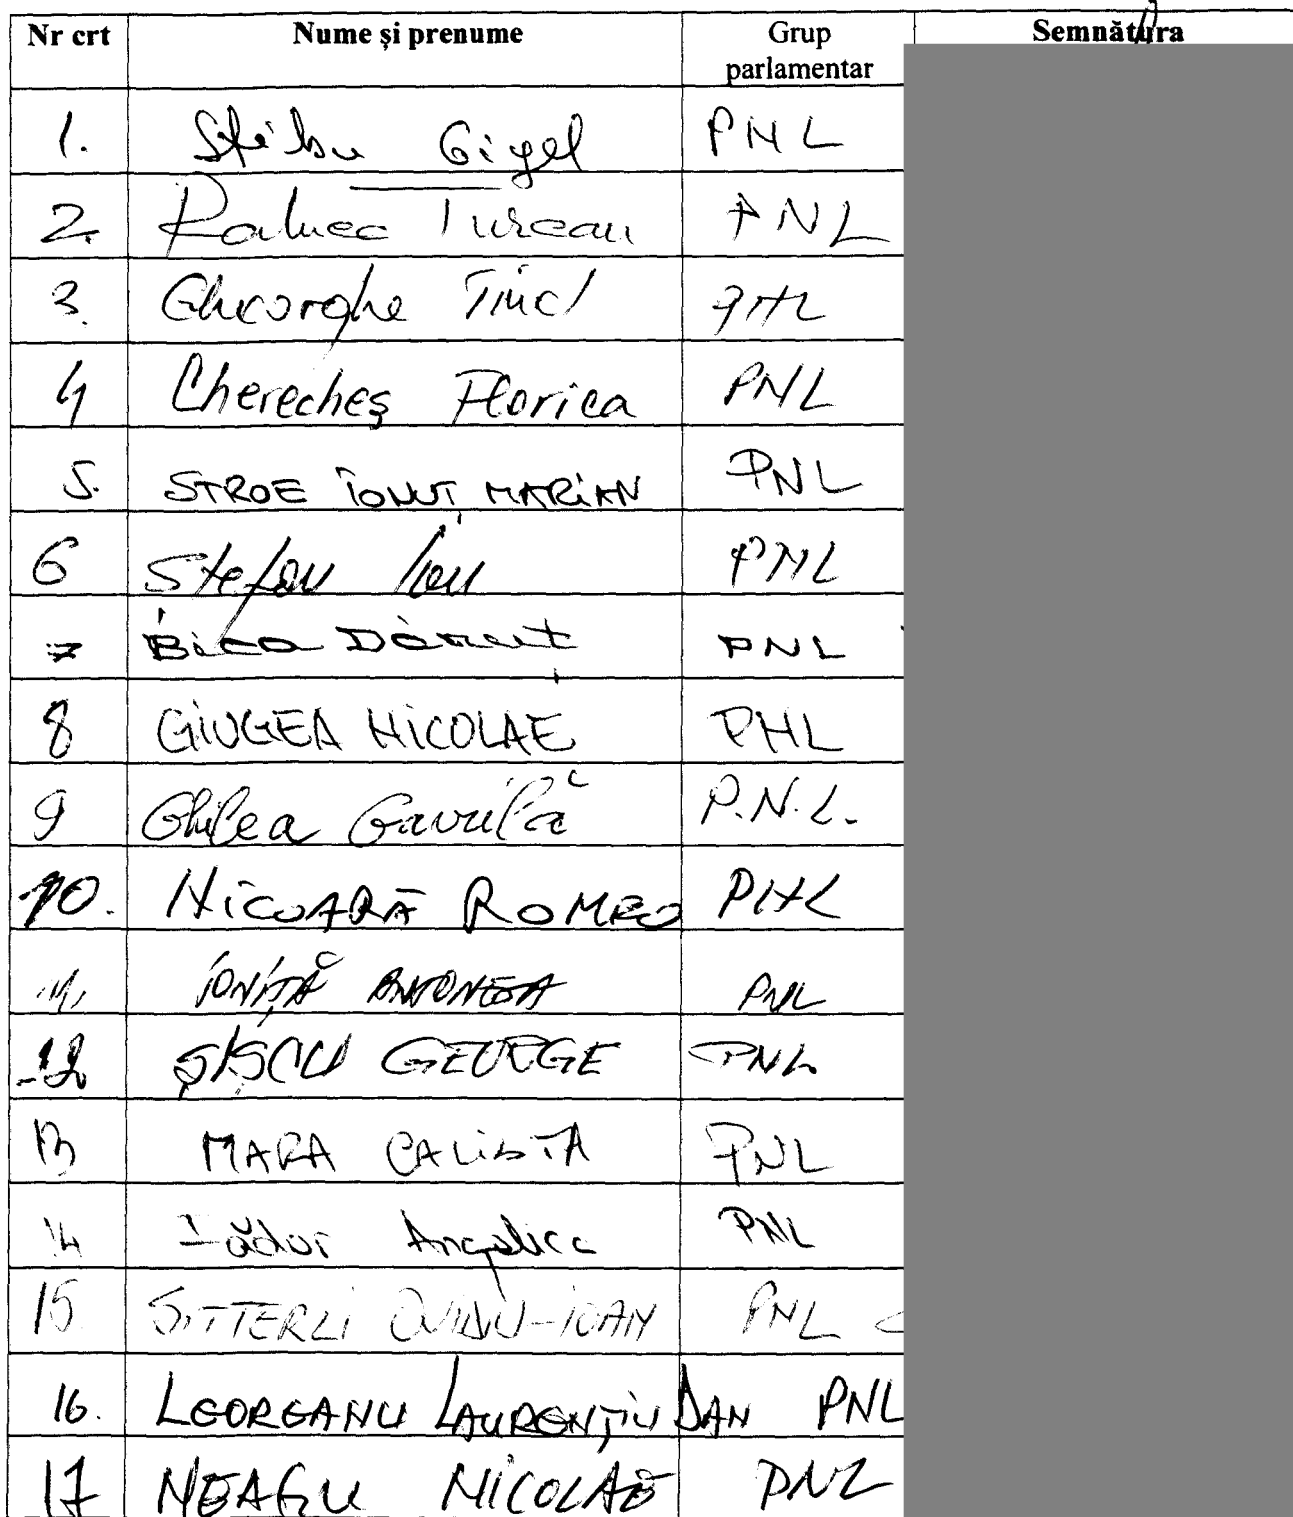 Nr crt Nume și prenume Grup parlamentar Semnătura
1. Știrbu Gigel PNL
2. Raluca Turcan PNL
3. Gheorghe Tinel PNL
4 Cherecheș Florica PNL
5. STROE IONUȚ MARIAN PNL
6 Ștefan Ion PNL
7 Bica Dănuț PNL
8 GIUGEA NICOLAE PNL
9 Ghilea Găvrilă P.N.L.
10. NICOARĂ ROMEO PNL
11. IONIȚĂ ANTONETA PNL
12 ȘIȘCU GEORGE PNL
13 MARA CALISTA PNL
14 Fădor Angelica PNL
15 SITTERLI OVIDIU-IOAN PNL
16. LEOREANU LAURENȚIU DAN PNL
17 NEAGU NICOLAE PNL